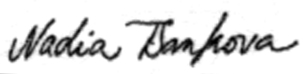 Nadia Dankova